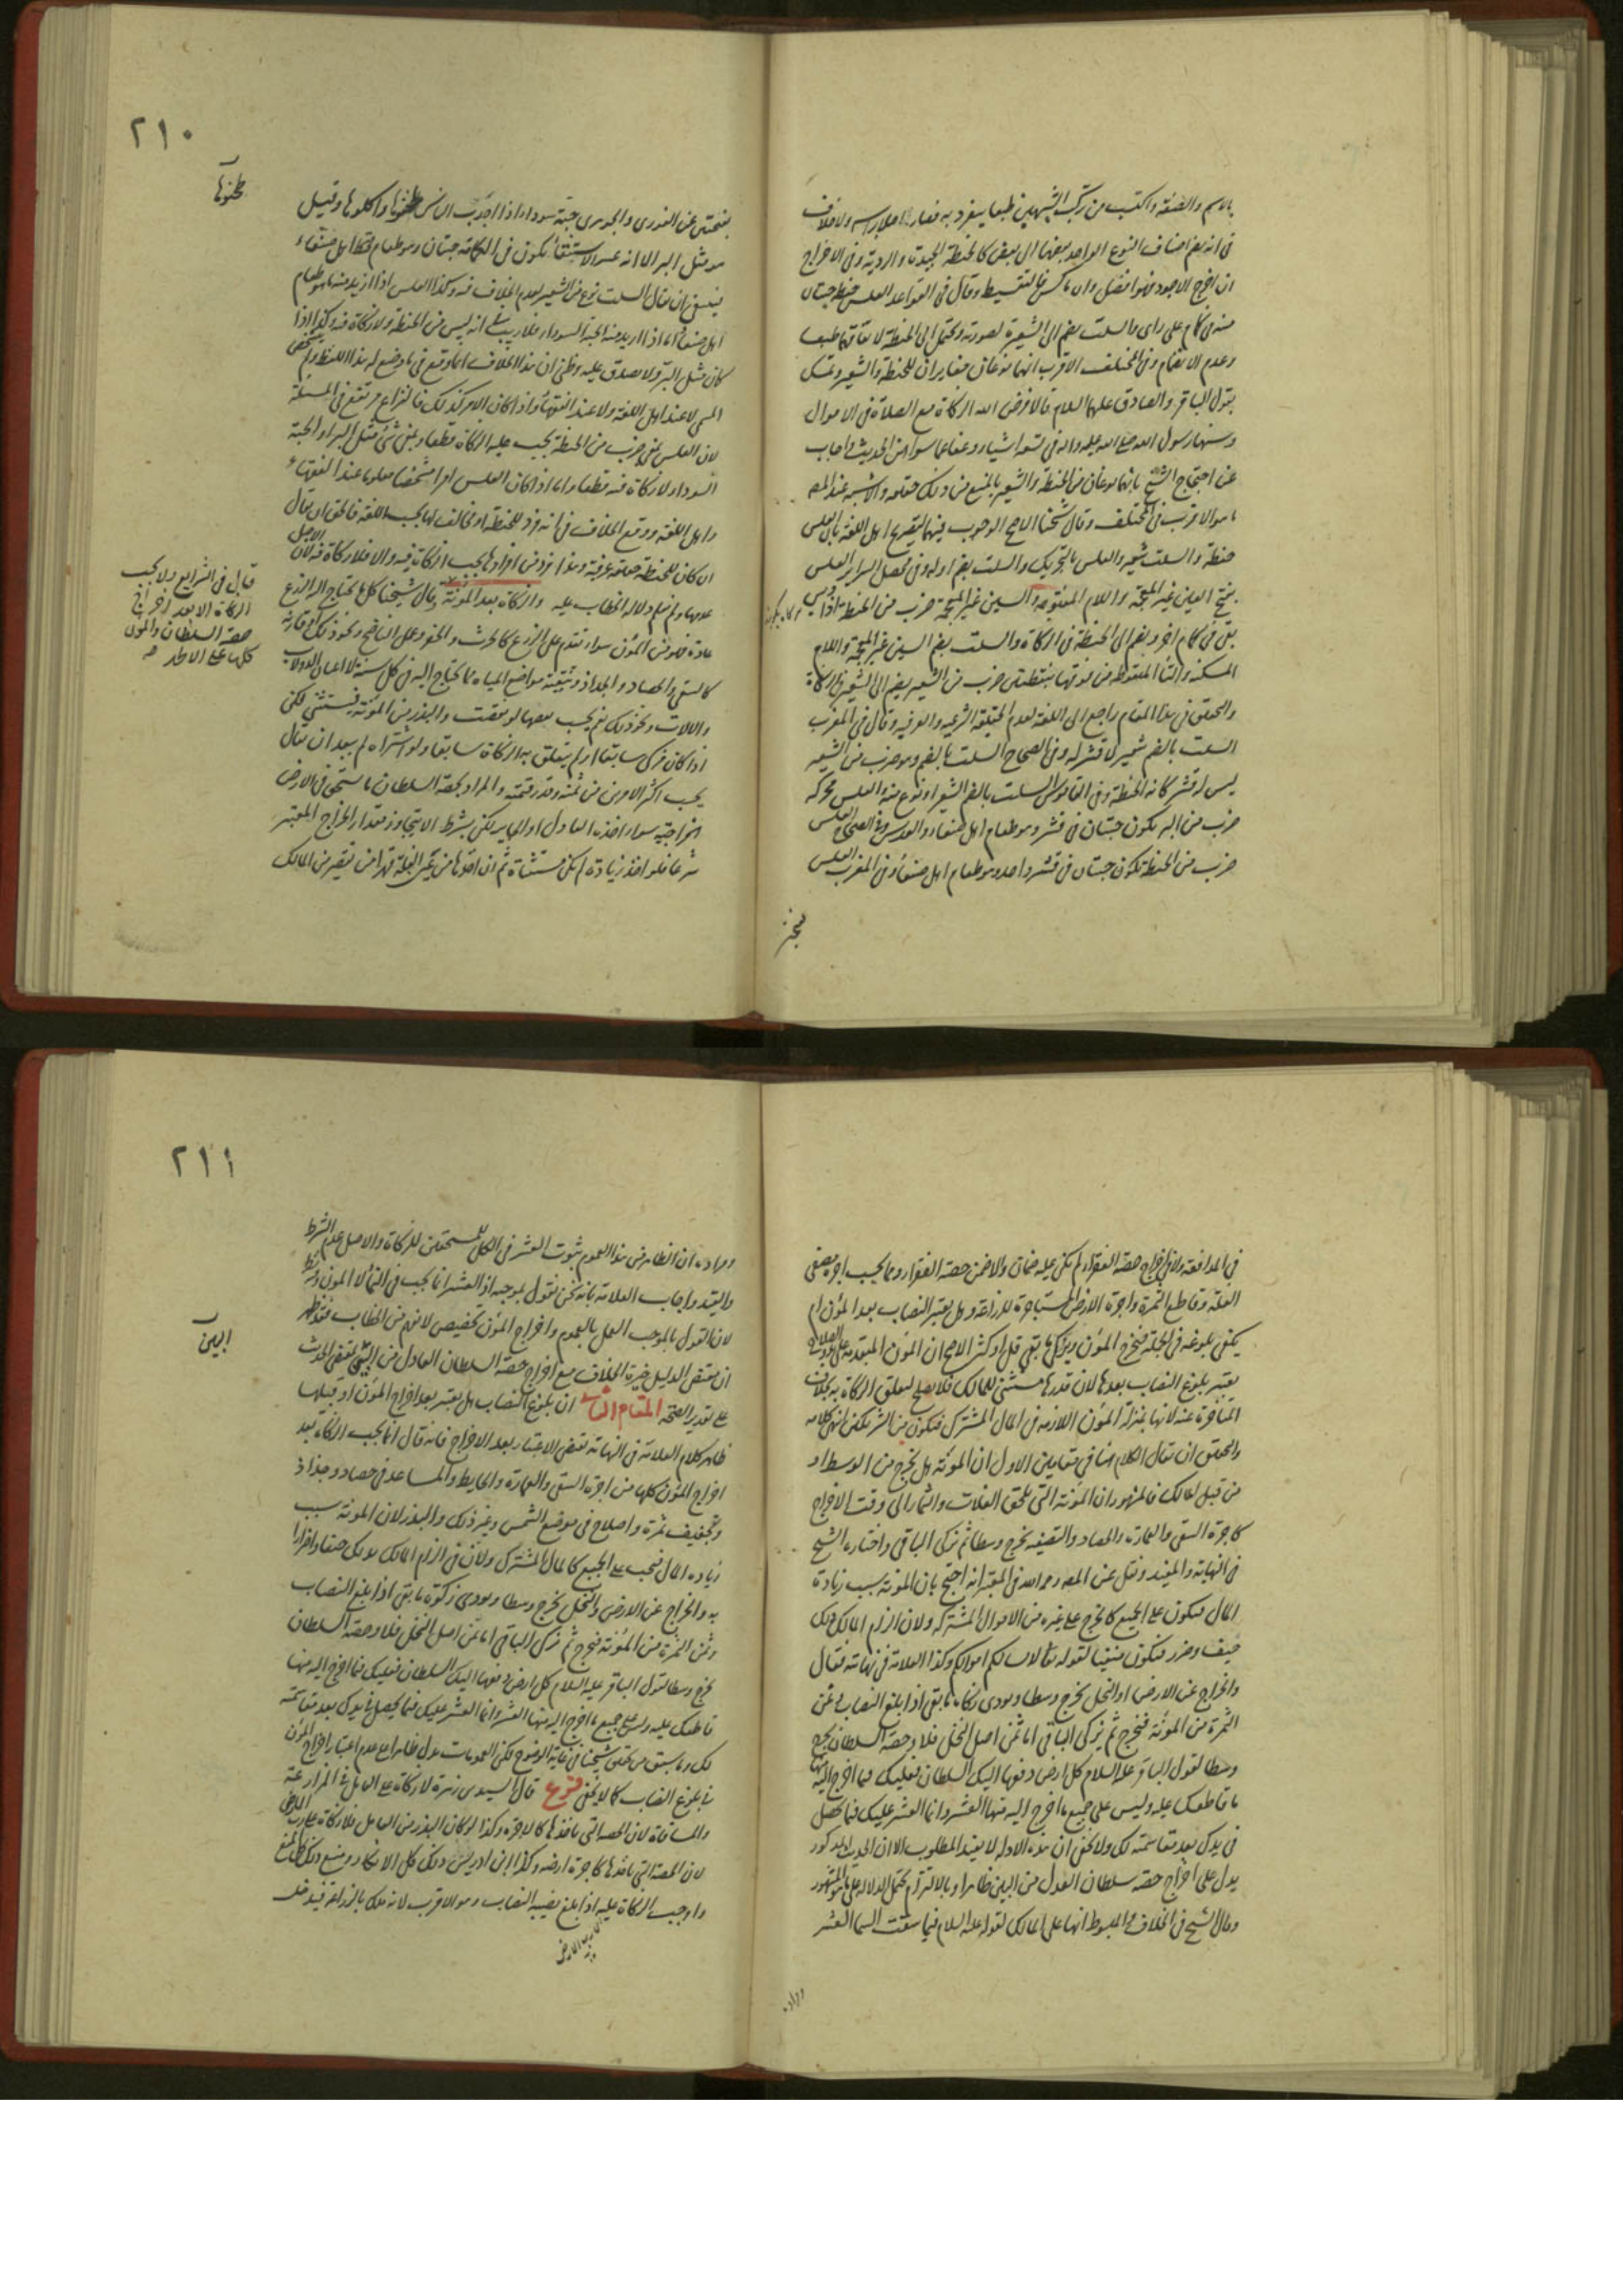 بالاسم والصفة واكتسب من تركب الشبهين طبعا ينفرد به فصار اصلا براسه ولا خلاف
فى انه يضم اصناف النوع الواحد بعضها الى بعض كالحنطة الجيدة والردية وفى الاخراج
ان اخرج الاجود فهو افضل وان ماكس فالتقسيط وقال فى القواعد العلس حنطة حبتان
منه فى كام على راى والسلت يضم الى الشعير لصورته ويحتمل الى الحنطة لاتفاقهما طبعا
وعدم الانضمام وفى المختلف الاقرب انهما نوعان مغايران للحنطة والشعير وتمسك
بقول الباقر والصادق عليهما السلام قالا فرض الله الزكاة مع الصلاة فى الاموال
وسنها رسول الله صلى الله عليه واله فى تسعة اشياء وعفا عما سواهن الحديث واجاب
عن احتجاج الشيخ بانهما نوعان من الحنطة والشعير بالمنع من ذلك حقيقة والاشبه عند المص
ما هو الاقرب فى المختلف وقال شيخنا الاصح الوجوب فيهما لتصريح اهل اللغة بان العلس
حنطة والسلت شعير والعلس بالتحريك والسلت بضم اوله وفى محصل السرائر العلس
بفتح العين غير المعجمة واللام المفتوحة والسين غير المعجمة ضرب من الحنطة اذا ديس
بقى فى كام اخر ويضم الى الحنطة فى الزكاة والسلت بضم السين غير المعجمة واللام
المسكنة والتاء المنقوطة من فوقها بنقطتين ضرب من الشعير يضم الى الشعير فى الزكاة
والتحقيق فى هذا المقام راجع الى اللغة لعدم الحقيقة الشرعية والعرفية وقال فى المغرب
السلت بالضم شعير لا قشر له وفى الصحاح السلت بالضم وهو ضرب من الشعير
ليس له قشر كانه الحنطة وفى القاموس السلت بالضم الشعير او نوع منه والعلس محركة
ضرب من البر يكون حبتان فى قشر وهو طعام اهل صنعاء والعدس وفى الصحاح العلس
ضرب من الحنطة تكون حبتان فى قشر واحد وهو طعام اهل صنعاء وفى المغرب العلس
٢١٠
طحنوها
بفتحتين عن الغورى والجوهرى حبة سوداء اذا اجدب الناس طحنوها واكلوها وقيل
هو مثل البر الا انه عسر الاستنقاء تكون فى الكامة حبتان وهو طعام اهل صنعاء
ينبغى ان يقال السلت نوع من الشعير لعدم الخلاف فيه وكذا العلس اذا اريد منه ما هو طعام
اهل صنعاء اما اذا اريد منه الحبة السوداء فلا ريب فى انه ليس من الحنطة ولا زكاة فيه وكذا اذا
كان مثل البر ولا يصدق عليه وظنى ان هذا الخلاف انما وقع فى ما وضع له هذا اللفظ ولم يتشخص
المسمى لا عند اهل اللغة ولا عند الفقهاء واذا كان الامر كذلك فالنزاع مرتفع فى المسئلة
لان العلس بمعنى ضرب من الحنطة يجب عليه الزكاة قطعا وبمعنى شئ مثل البر او الحبة
السوداء لا زكاة فيه قطعا واما اذا كان العلس امرا مشخصا معلوما عند الفقهاء
واهل اللغة ووقع الخلاف فى انه فرد للحنطة او مخالف لها بحسب اللغة فالحق ان يقال
ان كان للحنطة حقيقة عرفية وهذا فرد من افرادها يجب الزكاة فيه والا فلا زكاة فيه لان الاصل
عدمها ولم نسلم دلالة الخطاب عليه والزكاة بعد المؤنة وقال شيخنا كل ما يحتاج اليه الزرع
عادة فهو من المؤن سواء تقدم على الزرع كالحرث والحفر وعمل الناضح ونحو ذلك او قارنه
كالسقى والحصاد والجداد وتنقية مواضع المياه مما يحتاج اليه فى كل سنة لا اعيان الدولاب
والالات ونحو ذلك نعم يحسب نقصها لو نقصت والبذر من المؤنة فيستثنى لكن
اذا كان مزكى سابقا او لم يتعلق به الزكاة سابقا ولو اشتراه لم يبعد ان يقال
يجب اكثر الامرين من ثمنه وقدر قيمته والمراد بحصة السلطان ما يستحق فى الارض
الخراجية سواء اخذه العادل او الجاير لكن بشرط الا يتجاوز مقدار الخراج المعتبر
شرعا فلو اخذ زيادة لم تكن مستثناة ثم ان اخذها من عين الغلة قهرا من غير تقصير من المالك
قال فى الشرايع ولا يجب
الزكاة الا بعد اخراج
حصة السلطان والمؤن
كلها على الاظهر
فى المدافعة ولا فى اخراج حصة الفقراء لم يكن عليه ضمان والا ضمن حصة الفقراء ومما يحسب اجرة مصفى
الغلة وقاطع الثمرة واجرة الارض المستاجرة للزراعة وهل يعتبر النصاب بعد المؤن ام
يكفى بلوغه فى الجملة فيخرج المؤن ويزكى ما بقى قل او كثر الاصح ان المؤن المتقدمة على بدو الصلاح
يعتبر بلوغ النصاب بعدها لان قدرها مستثنى للمالك فلا يصلح لتعلق الزكاة به بخلاف
المتاخرة عنه لانها بمنزلة المؤن اللازمة فى المال المشترك فتكون من الشريكين انتهى كلامه
والتحقيق ان يقال الكلام هنا فى مقامين الاول ان المؤنة هل تخرج من الوسط او
من قبل المالك فالمشهور ان المؤنة التى تلحق الغلات والثمار الى وقت الاخراج
كاجرة السقى والعمارة والحصاد والتصفية تخرج وسطا ثم تزكى الباقى واختاره الشيخ
فى النهاية والمفيد ونقل عن المصـ رحمه الله فى المعتبر انه احتج بان المؤنة سبب زيادة
المال فتكون على الجميع كالخرج على غيره من الاموال المشتركة ولان الزام المالك ذلك
حيف وضرر فتكون منفيا لقوله تعالى لا يسالكم اموالكم وكذا العلامة فى نهايته فقال
والخراج عن الارض او النخل يخرج وسطا ويودى زكاة ما بقى اذا بلغ النصاب وثمن
الثمرة من المؤنة فتخرج ثم يزكى الباقى اما ثمن اصل النخل فلا وحصة السلطان تخرج
وسطا لقول الباقر عليه السلام كل ارض دفعها اليك السلطان فعليك فيما اخرج الله منها
ما قاطعك عليه وليس على جميع ما اخرج الله منها العشر وانما العشر عليك فيما يحصل
فى يدك بعد مقاسمته لك ولا يخفى ان هذه الادلة لا يفيد المطلوب الا ان الحديث المذكور
يدل على اخراج حصة سلطان العدل من البين ظاهرا وبالالتزام يحتمل الدلالة على ما هو المشهور
وقال الشيخ فى الخلاف والمبسوط انها على المالك لقوله عليه السلام فيما سقت السما العشر
٢١١
البين
ومراده ان الظاهر من هذا العموم ثبوت العشر فى الكل للمستحقين للزكاة والاصل عدم الشرط
والقيد واجاب العلامة بانه نحن نقول بموجبه اذ العشر انما يجب فى النماء لا المؤن وفيه نظر
لان القول بالموجب العمل بالعموم واخراج المؤن تخصيص لا يفهم من الخطاب فقد ظهر
ان مقتضى الدليل خيرة الخلاف مع اخراج حصة السلطان العادل من البين بمقتضى الحديث
على تقدير الصحة المقام الثانى ان بلوغ النصاب هل يعتبر بعد اخراج المؤن او قبلها
ظاهر كلام العلامة فى النهاية تقتضى الاعتبار بعد الاخراج فانه قال انما يجب الزكاة بعد
اخراج المؤن كلها من اجرة السقى والعمارة والحايط والمساعد فى حصاد وجذاذ
وتجفيف ثمرة واصلاح فى موضع الشمس وغير ذلك والبذر لان المؤنة سبب
زيادة المال فيجب على الجميع كالمال المشترك ولان فى الزام المالك بذلك حيفا واضرارا
به والخراج عن الارض والنخل يخرج وسطا ويودى زكوة ما بقى اذا بلغ النصاب
وثمن الثمرة من المؤنة فتخرج ثم تزكى الباقى اما ثمن اصل النخل فلا وحصة السلطان
تخرج وسطا لقول الباقر عليه السلام كل ارض دفعها اليك السلطان فعليك فيما اخرج الله منها
قاطعك عليه وليس على جميع ما اخرج الله منها العشر وانما العشر عليك فيما يحصل فى يدك بعد مقاسمته
لك وما سبق من تحقيق شيخنا فى غاية الوضوح لكن العمومات يدل ظاهرا على عدم اعتبار اخراج المؤن
فى بلوغ النصاب كما لا يخفى فرع قال السيد بن زهرة لا زكاة على العامل فى المزارعة
والمساقاة لان الحصة التى ياخذها كالاجرة وكذا لو كان البذر من العامل فلا زكاة على رب الارض
لان الحصة التى ياخذها كاجرة ارضه وكذا ابن ادريس ذلك كل الانكار ومنع ذلك كل المنع
واوجب الزكاة عليه اذا بلغ نصيبه النصاب وهو الاقرب لانه ملك بالزراعة فيدخل